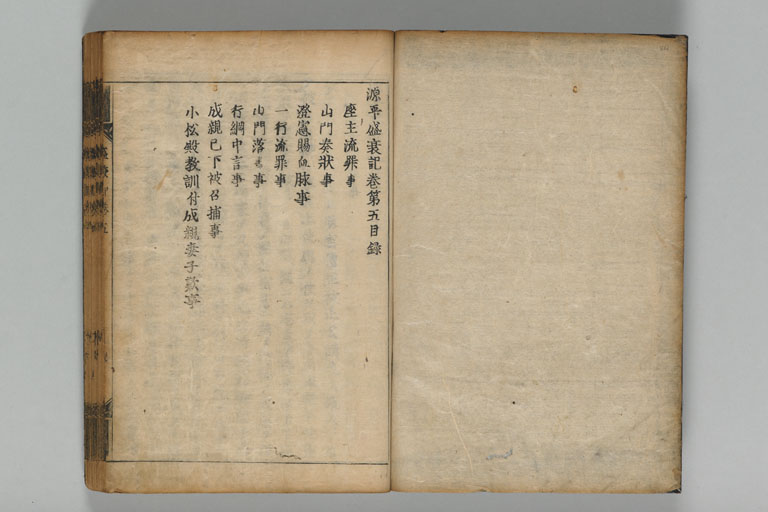 源平盛衰記巻第五目録
座主流罪事
山門奏状事
澄憲賜血脉事
一行流罪事
山門落書事
行綱中言事
成親已下被召捕事
小松殿教訓付成親妻子歎事